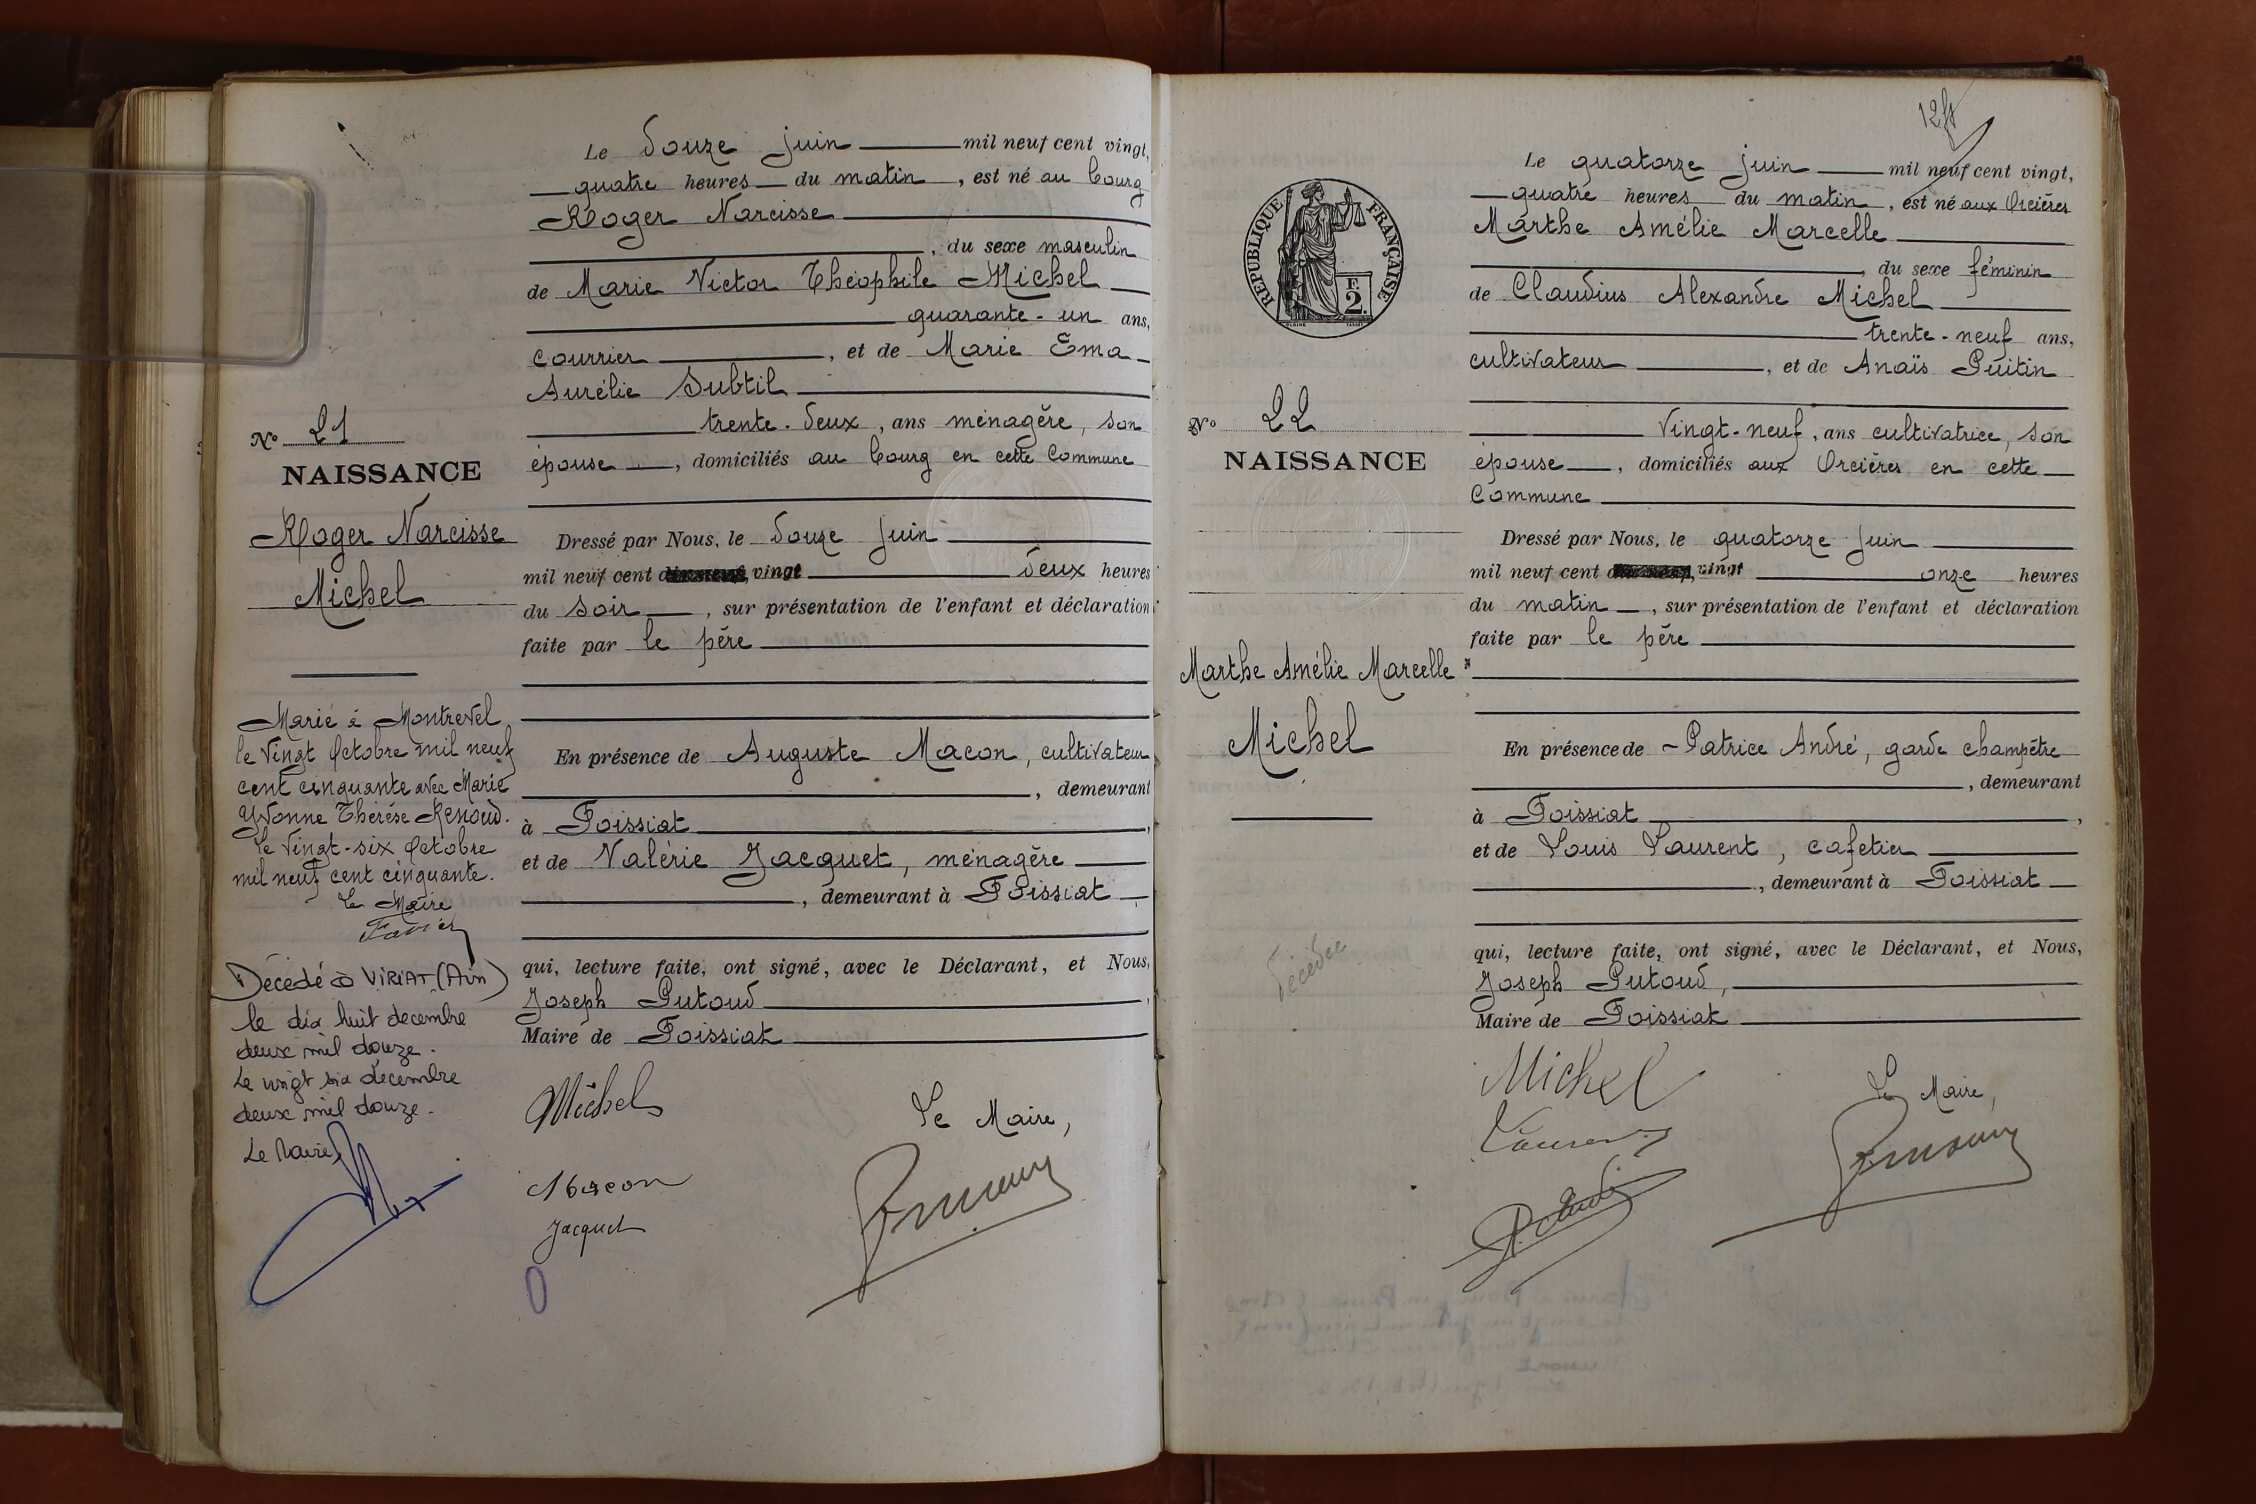 Le douze juin mil neuf cent vingt,
quatre heures du matin, est né au bourg
Roger Narcisse
, du sexe masculin
de Marie Victor Théophile Michel
quarante-un ans,
courrier, et de Marie Ema
Aurélie Subtil
trente-deux, ans ménagère, son
épouse, domiciliés au bourg en cette commune
No 21
NAISSANCE
Roger Narcisse
Michel
Dressé par Nous, le douze juin
mil neuf cent vingt deux heures
du soir, sur présentation de l'enfant et déclaration
faite par le père
En présence de Auguste Macon, cultivateur
, demeurant
à Foissiat,
et de Valérie Jacquet, ménagère
, demeurant à Foissiat
qui, lecture faite, ont signé, avec le Déclarant, et Nous,
Joseph Putoud,
Maire de Foissiat
Michel
Le Maire,
Macon
Jacquet
Marié à Montrevel
le vingt octobre mil neuf
cent cinquante avec Marie
Yvonne Thérèse Renoud.
Le vingt-six octobre
mil neuf cent cinquante.
Le Maire
Décédé à VIRIAT (Ain)
le dix huit décembre
deux mil douze.
Le vingt six décembre
deux mil douze.
Le Maire
RÉPUBLIQUE FRANÇAISE
F.
2.
Le quatorze juin mil neuf cent vingt,
quatre heures du matin, est né aux Orcières
Marthe Amélie Marcelle
, du sexe féminin
de Claudius Alexandre Michel
trente-neuf ans,
cultivateur, et de Anaïs Puitin
vingt-neuf, ans cultivatrice, son
épouse, domiciliés aux Orcières en cette
commune
No 22
NAISSANCE
Marthe Amélie Marcelle
Michel
décédée
Dressé par Nous, le quatorze juin
mil neuf cent vingt onze heures
du matin, sur présentation de l'enfant et déclaration
faite par le père
En présence de Patrice André, garde champêtre
, demeurant
à Foissiat,
et de Louis Laurent, cafetier
, demeurant à Foissiat
qui, lecture faite, ont signé, avec le Déclarant, et Nous,
Joseph Putoud,
Maire de Foissiat
Michel
Le Maire,
Laurent